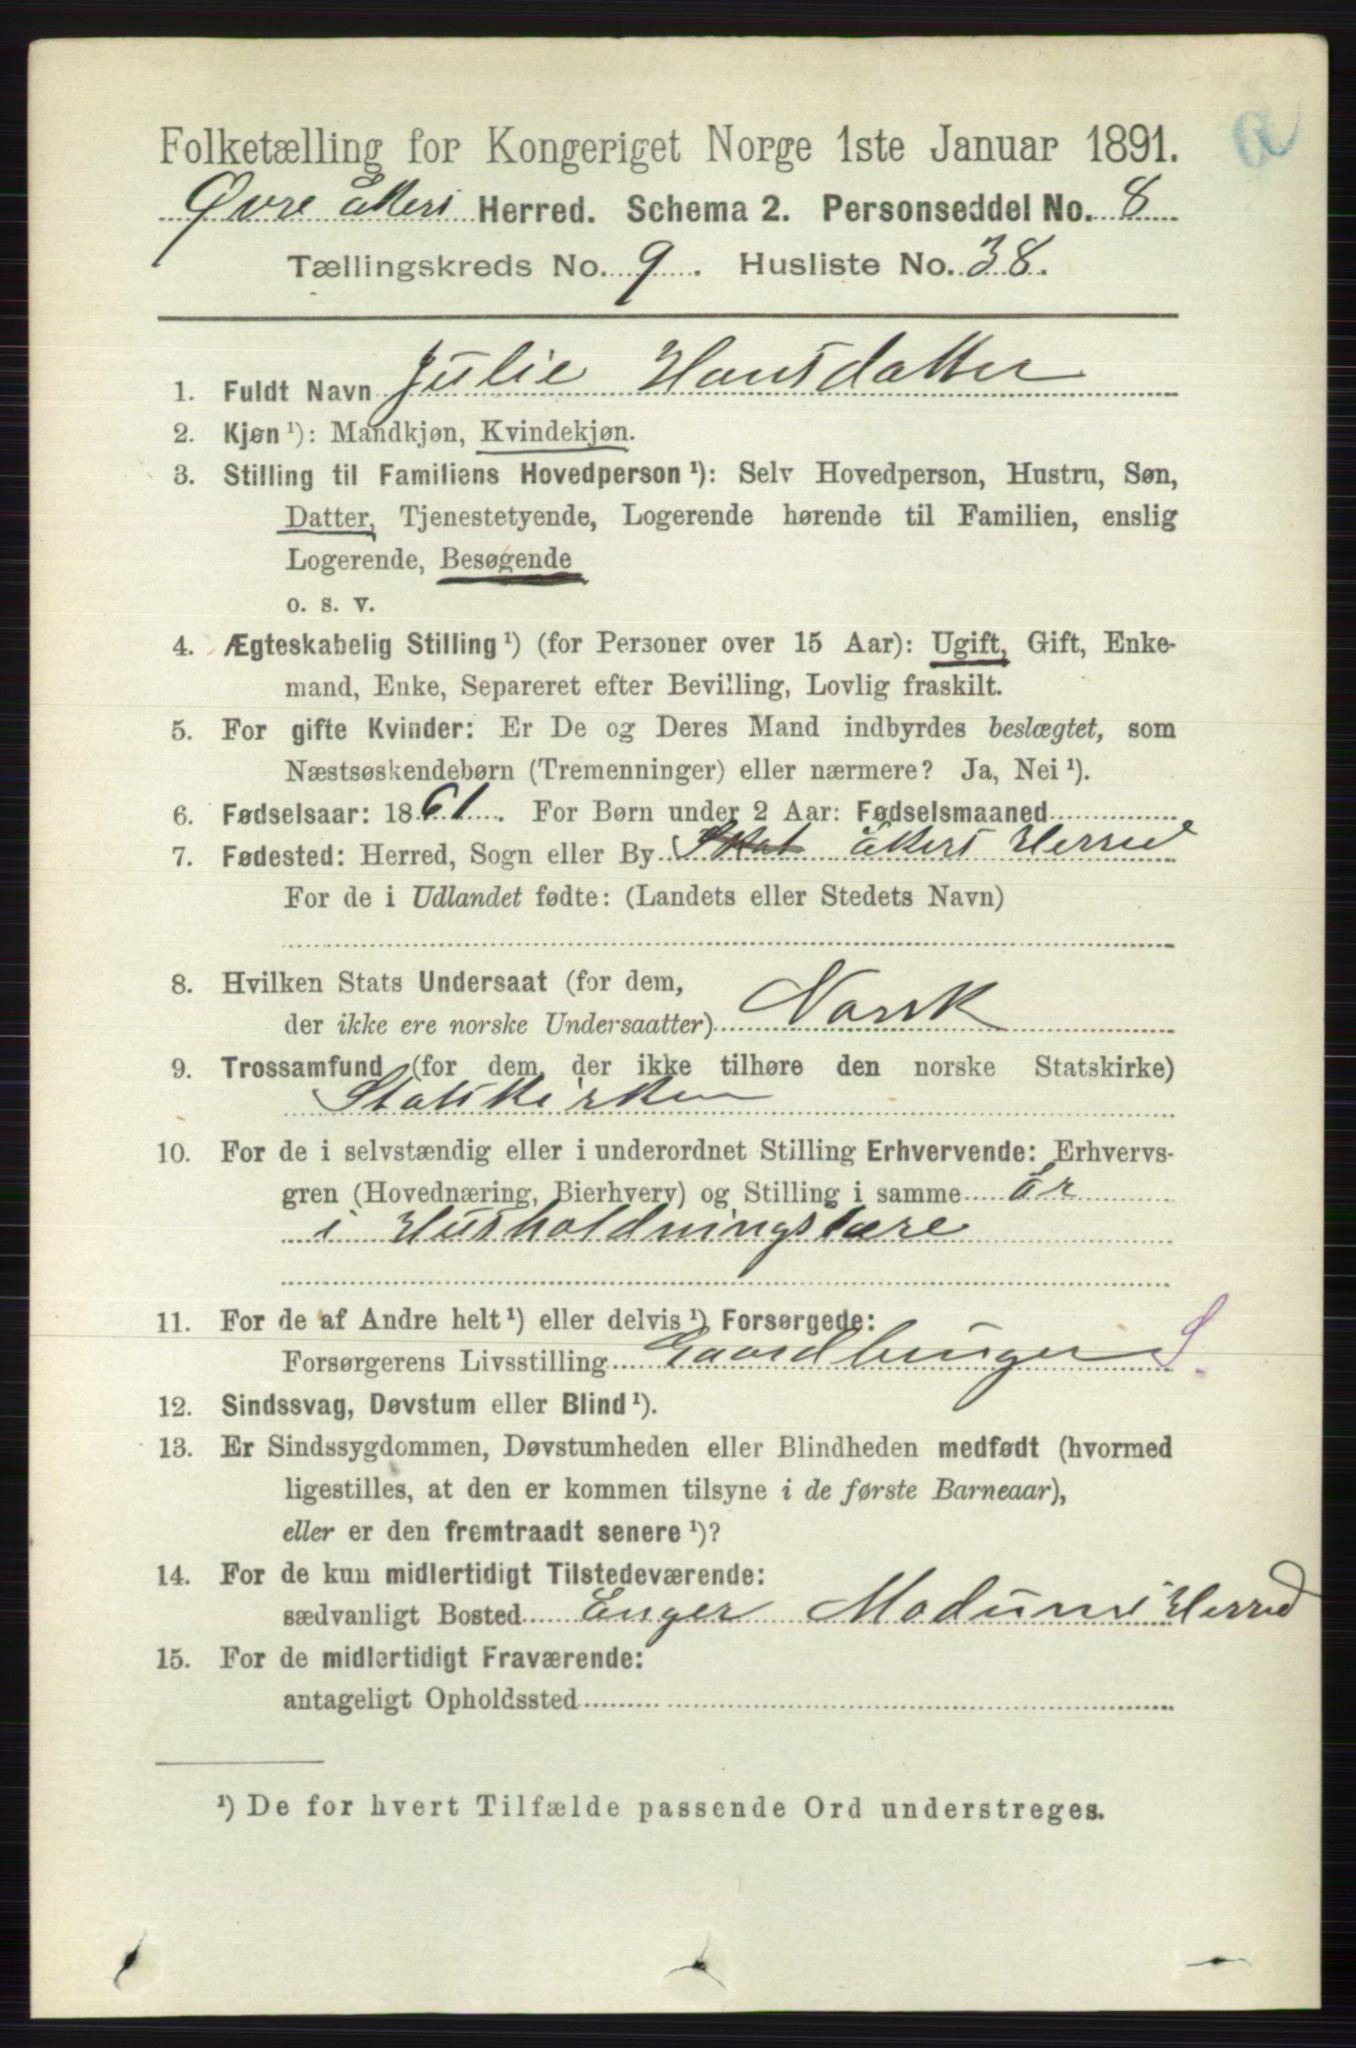 a
Folketælling for Kongeriget Norge 1ste Januar 1891.
Øvre Ekers Herred. Schema 2. Personseddel No. 8
Tællingskreds No. 9. Husliste No. 38.
1. Fuldt Navn Julie Hansdatter
2. Kjøn ¹): Mandkjøn, Kvindekjøn.
3. Stilling til Familiens Hovedperson ¹): Selv Hovedperson, Hustru, Søn,
Datter, Tjenestetyende, Logerende hørende til Familien, enslig
Logerende, Besøgende
o. s. v.
4. Ægteskabelig Stilling ¹) (for Personer over 15 Aar): Ugift, Gift, Enke-
mand, Enke, Separeret efter Bevilling, Lovlig fraskilt.
5. For gifte Kvinder: Er De og Deres Mand indbyrdes beslægtet, som
Næstsøskendebørn (Tremenninger) eller nærmere? Ja, Nei ¹).
6. Fødselsaar: 1861. For Børn under 2 Aar: Fødselsmaaned
7. Fødested: Herred, Sogn eller By Ekers Herred
For de i Udlandet fødte: (Landets eller Stedets Navn)
8. Hvilken Stats Undersaat (for dem,
der ikke ere norske Undersaatter) Norsk
9. Trossamfund (for dem, der ikke tilhøre den norske Statskirke)
Statskirken
10. For de i selvstændig eller i underordnet Stilling Erhvervende: Erhvervs-
gren (Hovednæring, Bierhverv) og Stilling i samme Er
i Husholdningslære
11. For de af Andre helt ¹) eller delvis ¹) Forsørgede:
Forsørgerens Livsstilling Gaardbruger S.
12. Sindssvag, Døvstum eller Blind ¹).
13. Er Sindssygdommen, Døvstumheden eller Blindheden medfødt (hvormed
ligestilles, at den er kommen tilsyne i de første Barneaar),
eller er den fremtraadt senere ¹)?
14. For de kun midlertidigt Tilstedeværende:
sædvanligt Bosted Enger Modums Herred
15. For de midlertidigt Fraværende:
antageligt Opholdssted
¹) De for hvert Tilfælde passende Ord understreges.